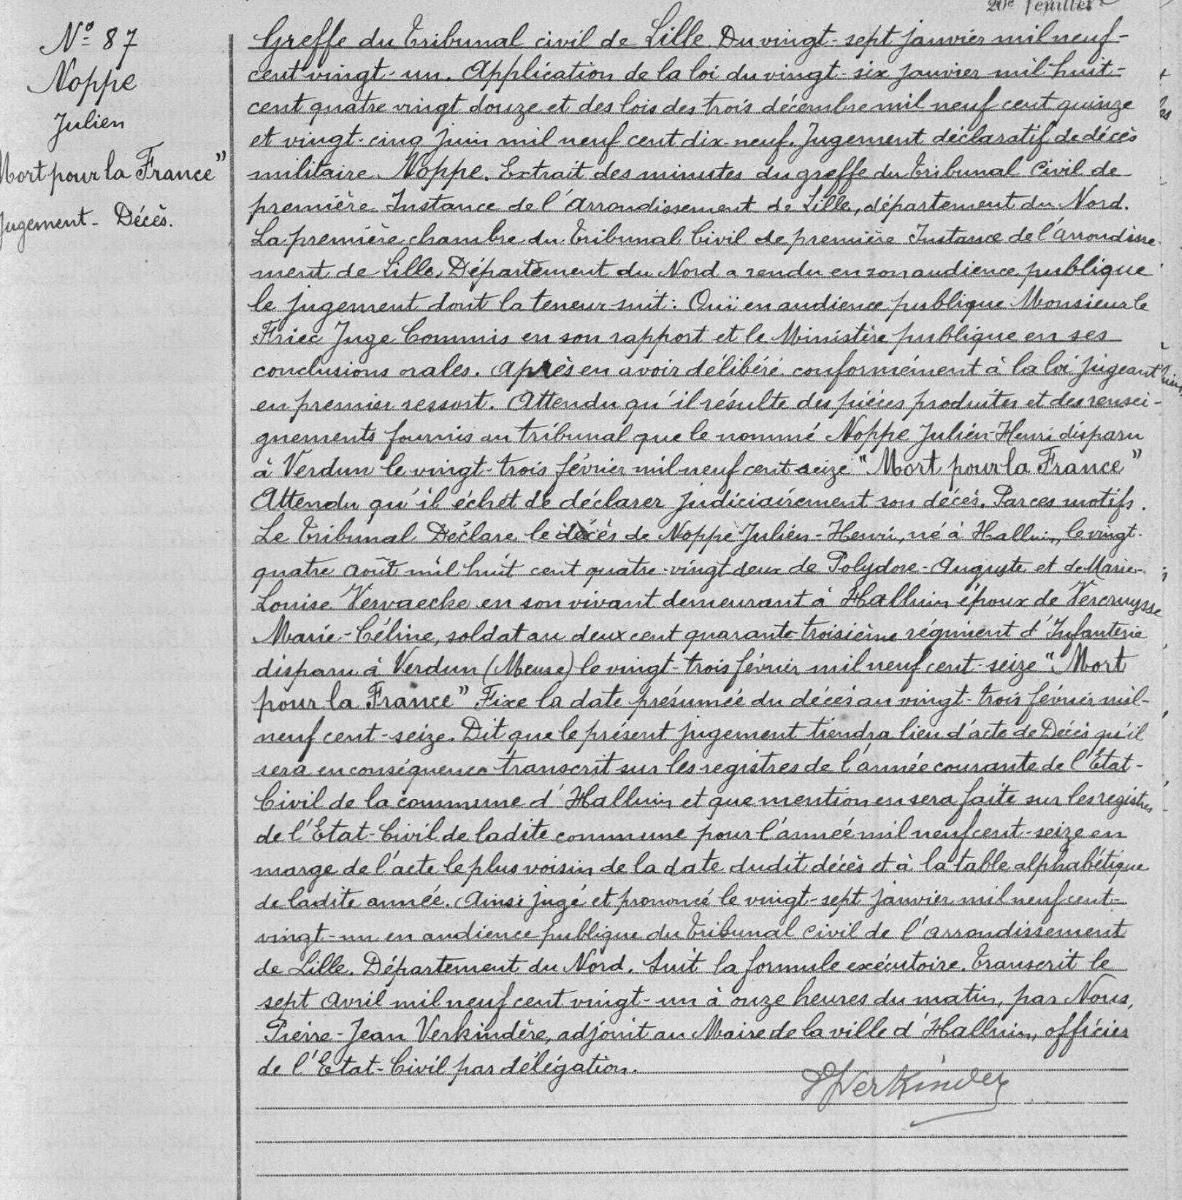 20e feuillet
N° 87
Noppe
Julien
Mort pour la France"
Jugement - Décès.
Greffe du Tribunal civil de Lille. Du vingt-sept janvier mil neuf-
cent vingt-un. Application de la loi du vingt-six janvier mil huit-
cent quatre vingt douze et des lois des trois décembre mil neuf cent quinze
et vingt-cinq juin mil neuf cent dix-neuf. Jugement déclaratif de décès
militaire. Noppe. Extrait des minutes du greffe du Tribunal Civil de
première Instance de l'arrondissement de Lille, département du Nord.
La première chambre du Tribunal Civil de première Instance de l'arrondisse-
ment de Lille, Département du Nord a rendu en son audience publique
le jugement dont la teneur suit: Ouï en audience publique Monsieur le
Friec Juge Commis en son rapport et le Ministère publique en ses
conclusions orales. Après en avoir délibéré conformément à la loi jugeant
en premier ressort. Attendu qu'il résulte des pièces produites et des rensei-
gnements fournis au tribunal que le nommé Noppe Julien-Henri disparu
à Verdun le vingt-trois février mil neuf cent seize "Mort pour la France"
Attendu qu'il échet de déclarer judiciairement son décès. Par ces motifs.
Le Tribunal Déclare le décès de Noppe Julien-Henri, né à Halluin, le vingt-
quatre août mil huit cent quatre-vingt deux de Polydore-Auguste et de Marie-
Louise Vervaecke en son vivant demeurant à Halluin époux de Vercruysse
Marie-Céline, soldat au deux cent quarante troisième régiment d'Infanterie
disparu à Verdun (Meuse) le vingt-trois février mil neuf cent-seize "Mort
pour la France" Fixe la date présumée du décès au vingt-trois février mil-
neuf cent-seize. Dit que le présent jugement tiendra lieu d'acte de Décès qu'il
sera en conséquence transcrit sur les registres de l'année courante de l'Etat-
Civil de la commune d'Halluin et que mention en sera faite sur les registres
de l'Etat-Civil de ladite commune pour l'année mil neuf cent-seize en
marge de l'acte le plus voisin de la date dudit décès et à la table alphabétique
de ladite année. Ainsi jugé et prononcé le vingt-sept janvier mil neuf cent-
vingt-un en audience publique du Tribunal civil de l'arrondissement
de Lille. Département du Nord. Suit la formule exécutoire. Transcrit le
sept Avril mil neuf cent vingt-un à onze heures du matin, par Nous,
Pierre-Jean Verkindère, adjoint au Maire de la ville d'Halluin, officier
de l'Etat-Civil par délégation.